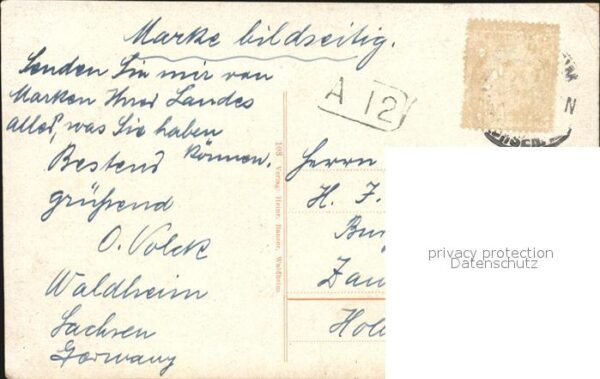 Marke bildseitig.
Senden Sie mir von
Marken Ihres Landes
alles, was Sie haben
können.
Bestens
grüßend
O. Volck
Waldheim
Sachsen
Germany
A 12
N
168 Verlag Heinr. Bauser, Waldheim
Herrn
H. J.
Hol
privacy protection
Datenschutz